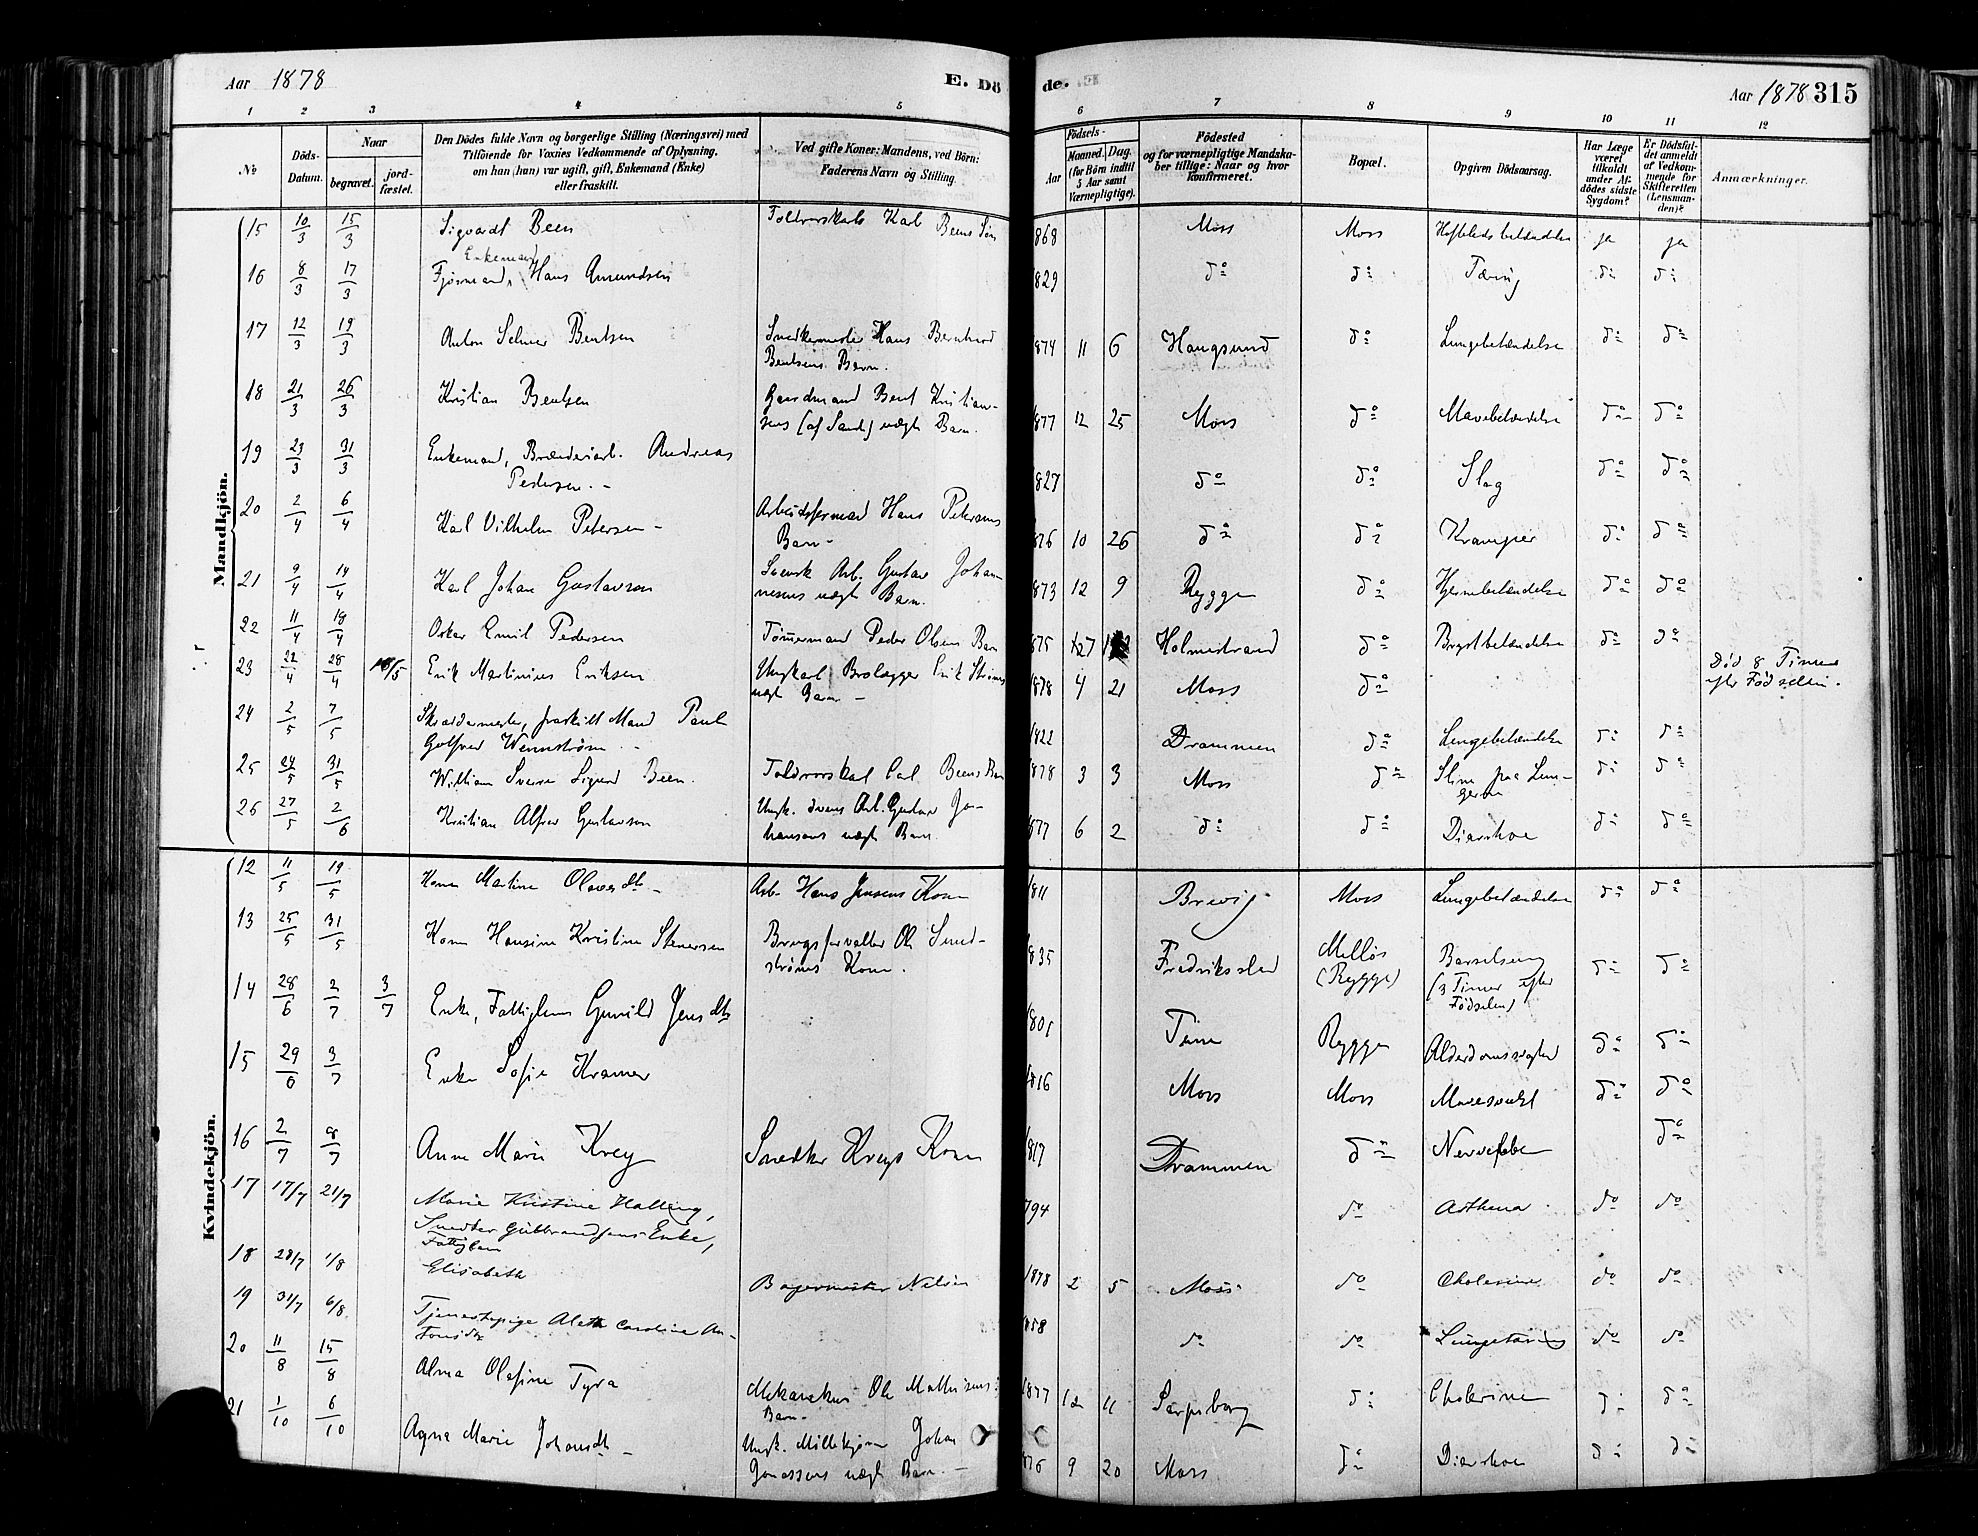 Aar 1878 E. Dö
de. Aar 1878 315
1 2 3 4 5 6 7 8 9 10 11 12
No Döds-Datum. Naar begravet. jordfæstet. Den Dödes fulde Navn og borgerlige Stilling (Næringsvei) med Tilföiende for Voxnes Vedkommende af Oplysning, om han (hun) var ugift, gift, Enkemand (Enke) eller fraskilt. Ved gifte Koner: Mandens, ved Börn: Faderens Navn og Stilling. Födsels- Aar Maaned. Dag. (for Börn indtil 5 Aar samt Værnepligtige). Födested og for værnepligtige Mandskaber tillige: Naar og hvor konfirmeret. Bopæl. Opgiven Dödsaarsag. Har Læge været tilkaldt under Afdödes sidste Sygdom? Er Dödsfaldet anmeldt af Vedkommende for Skifteretten (Lensmanden)? Anmærkninger.
Mandkjön.
15 10/3 15/3 Sigvardt Been Toldrorskarl Karl Beens Søn 868 Moss Moss Hofteledsbetændelse ja ja
16 8/3 17/3 Fjørmand, Enkemand Hans Amundsen 829 do do Tæring do do
17 12/3 19/3 Anton Selmer Bentsen Snedkermester Hans Bernhard
Bentsens Barn. 874 11 6 Haugsund do Lungebetændelse do do
18 21/3 26/3 Kristian Bentsen Gaardmand Bent Kristian-
sens (af Sand) uægte Barn. 877 12 25 Moss do Mavebetændelse do do
19 23/3 31/3 Enkemand, Brænderiarb. Andreas
Pedersen.- 827 do do Slag do do
20 2/4 6/4 Karl Vilhelm Petersen - Arbeidsformand Hans Petersens
Barn- 876 10 26 do do Kramper do do
21 9/4 14/4 Karl Johan Gustavson Svensk Arb. Gustav Johan-
nesens uægte Barn. 873 12 9 Rygge do Hjernebetændelse do do
22 11/4 18/4 Oskar Emil Pedersen Tømmermand Peder Olsens Barn 875 Holmestrand do Brystbetændelse do do
23 22/4 28/4 Erik Martinius Eriksen Ungkarl Brolægger Erik
uægte Barn - 1878 4 21 Moss do Død 8 Timer
efter Fødselen.
24 2/5 7/5 Skræddermester, fraskilt Mand Paul
Gotfred Wennstrøm 1822 Drammen do Lungebetændelse do do
25 24/5 31/5 William Sverre Sigurd Been. Toldrorskarl Carl Beens Barn 1878 3 3 Moss do Slim paa Lun-
gerne do do
26 27/5 2/6 Kristian Alfred Gustavson Ungk. svensk Arb. Gustav Jo-
hansens uægte Barn. 877 6 2 do do Diarrhoe do do
Kvindekjön.
12 11/5 19/5 Kone Martine Olavesdtr - Arb. Hans Jensens Kone 1811 Brevig Moss Lungebetændelse do do
13 25/5 31/5 Kone Hansine Kristine Stenersen Brugsforvalter Ole Sand-
strøms Kone. 835 Fredriksstad Melløs
(Rygge) Barselseng
(3 Timer efter
Fødselen) do do
14 28/6 2/7 3/7 Enke, Fattiglem Gunild Jensdtr 1801 Rygge Alderdomssvaghed do do
15 29/6 3/7 Enke Sofie Kramer 1816 Moss Moss Mavesvulst do do
16 2/7 8/7 Anne Marie Krey Snedker Kreys Kone 817 Drammen do Nervefeber do
17 17/7 21/7 Marie Kristine Halling,
Snedker Gulbrandsens Enke,
Fattiglem 794 do Asthenia do do
18 28/7 1/8 Elisabeth Bagermester Nelsen 1878 2 5 Moss do Cholerine do do
19 31/7 6/8 Tjenestepige Aleth Caroline An-
tonsdtr 858 do do Lungetæring do do
20 11/8 15/8 Alma Olefine Tyra Mekanikus Ole Mathisens
Barn- 1877 12 11 Sarpsborg do Cholerine do do
21 1/10 6/10 Agna Marie Johansdtr - Ungk. Møllekjører Johan
Jonassens uægte Barn. - 876 9 20 Moss do Diarrhoe do do